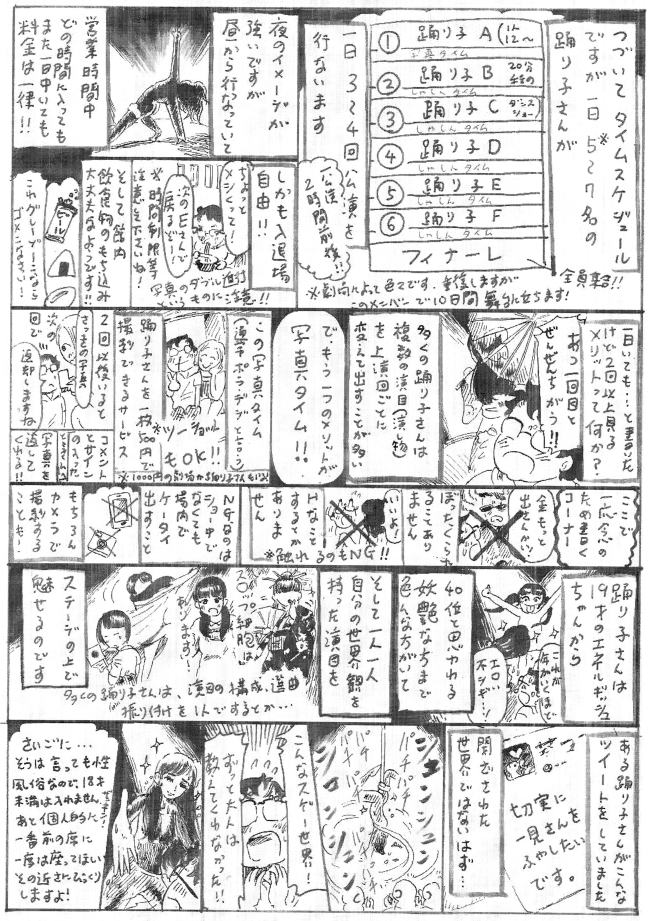 つづいてタイムスケジュール
ですが一日5~7名の※
踊り子さんが
① 踊り子A(1人12~
② 踊り子B 20分
しゃしんタイム
③ 踊り子C (ダンスショー)
しゃしんタイム
④ 踊り子D
しゃしんタイム
⑤ 踊り子E
しゃしんタイム
⑥ 踊り子F
しゃしんタイム
フィナーレ
全員集合!!
一日3~4回公演を
行ないます
1公演
2時間前後!!
このメンバーで10日間舞台に立ちます!
夜のイメージが
強いですが
昼から行なっていて
営業時間中
どの時間に入っても
また一日中いても
料金は一律!!
しかも入退場
自由!!
ちょっと
メシくってー
次のEさんで
戻るぞ!
※時間制限等
注意して下さいね!
そして館内
飲食物のもち込み
大丈夫なようです!!
これグレーゾーンなら
ゴメンなさい…
ビール
一日いても…と書いた
けど2回以上見る
メリットって何か?
あっ1回目と
ぜんぜんちがう!!
多くの踊り子さんは
複数の演目(演し物)
を上演回ごとに
変えて出すことが多い
で、もう一つのメリットが
写真タイム!!
この写真タイム
踊り子さんを一枚500円で
撮影できるサービス
※ツーショット
もOK!!
2回以後いると
さっきの写真
次の
回で
返却しますね
コメント
とサイン
の入った
写真を
返して
くれる!!
ここで
一応念の
ため書く
コーナー
金もっと
出せんかい!
ぼったくられ
ることあり
ません
いいよ!
Hなこと
するとか
ありま
せん
※触れるのもNG!!
NGなのは
ショー中で
なくても
場内で
ケータイ
出すこと
もちろん
カメラで
撮影する
ことも!
踊り子さんは
19才のエネルギッシュ
ちゃんから
これが
年がいくほど
エロい
不シギ…!
40位と思われる
妖艶な方まで
色んな方がいて
そして一人一人
自分の世界観を
持った演目を
ステージの上で
魅せるのです
スタップ細胞は
あります!
多くの踊り子さんは、演目の構成、選曲
振り付けを1人でするとか…
ある踊り子さんがこんな
ツイートをしていました
切実に
一見さんを
ふやしたい
です。
閉ざされた
世界ではないはず…
パチパチ
シュンシュン
こんなスゲー世界!
ずっと大人は
教えてくれなかった!!
さいごに…
そうは言っても性
風俗なので、18才
未満は入れません。
あと個人的に
一番前の席に
一度は座ってほしい
その近さにびっくり
しますよ!